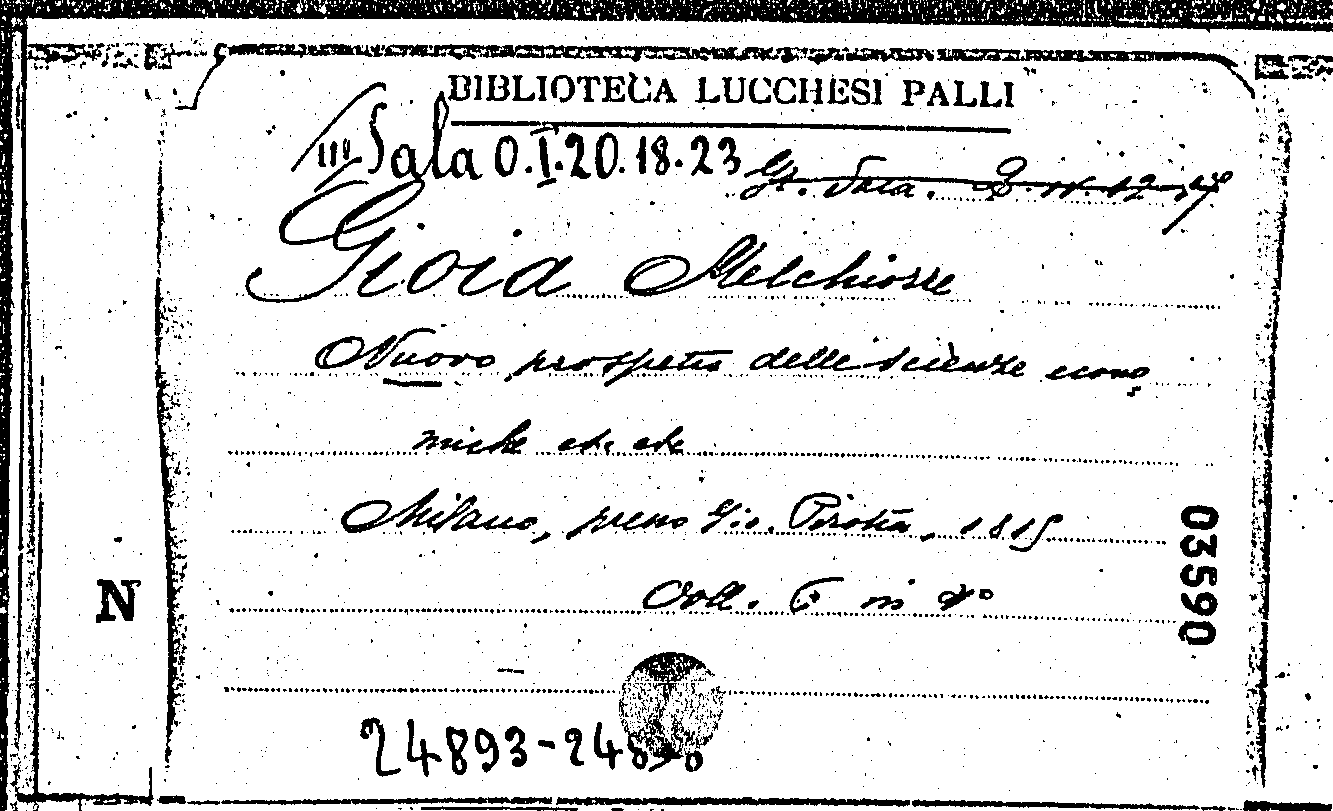 BIBLIOTECA LUCCHESI PALLI
III Sala O.I.20.18.23
Gr. Sala. 8. IV. 12-17
Gioia Melchiorre
Nuovo prospetto delle scienze econo
miche etc etc
Milano, presso Gio. Pirotta, 1815
Voll. 6 in 4°
N
03590
24893-24898